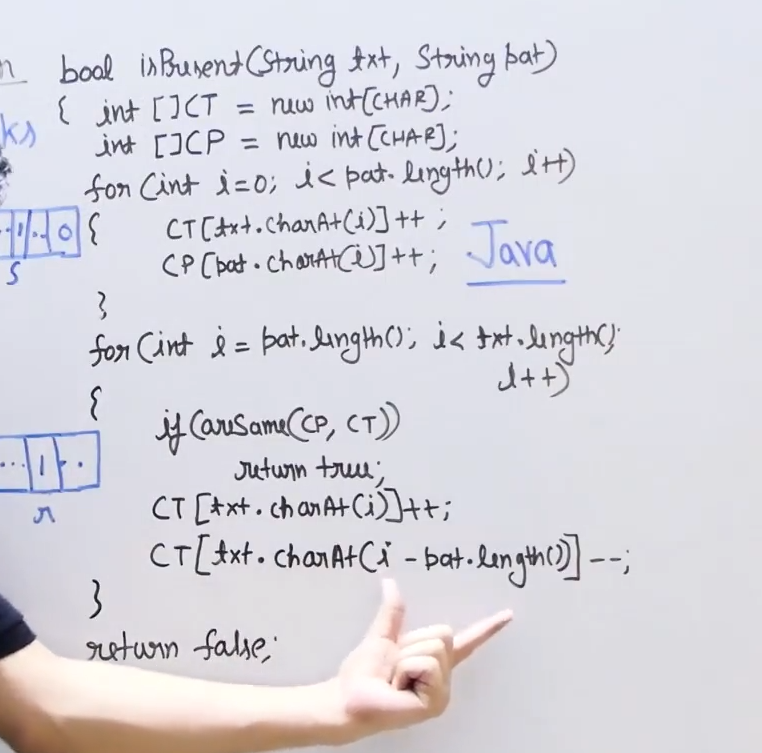 n bool isPresent(String txt, String pat)
ks { int []CT = new int[CHAR];
int []CP = new int[CHAR];
for (int i=0; i< pat.length(); i++)
0 { CT[txt.charAt(i)]++ ;
s CP[pat.charAt(i)]++; Java
}
for (int i = pat.length(); i< txt.length();
i++)
{
if (areSame(CP, CT))
... 1 ..
return true;
r CT[txt.charAt(i)]++;
CT[txt.charAt(i - pat.length())] --;
}
return false;